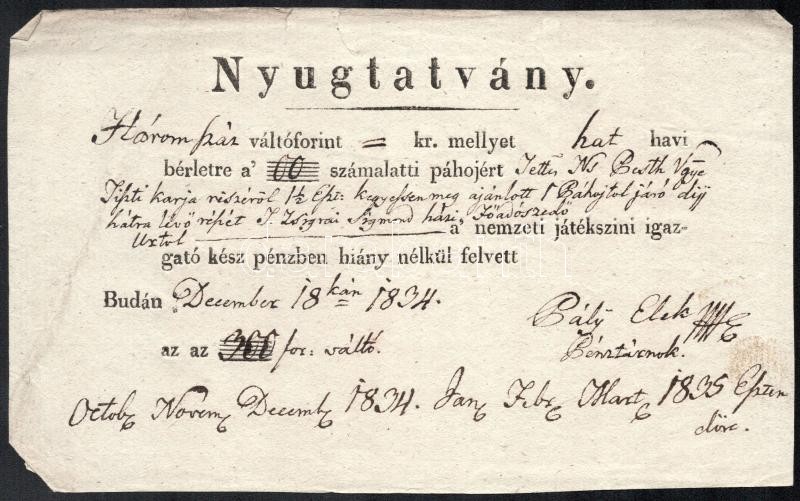 Nyugtatvány.
Három száz váltóforint = kr. mellyet hat havi
bérletre a' 00 számalatti páhojért Tettes Ns Pesth Vgye
Tiszti karja részéről 1½ Eszt: kegyessen meg ajánlott 1 Páhojtol járó díj
hátra lévő részét T. Zsigrai Sigmond házi Főadószedő
Urtol a' nemzeti játékszini igaz-
gató kész pénzben hiány nélkül felvett
Budán December 18kán 1834.
Pály Elek
az az 300 for: váltó. Pénztárnok.
Octob Novem Decemb 1834. Jan Febr Mart 1835 Eszten
döre.